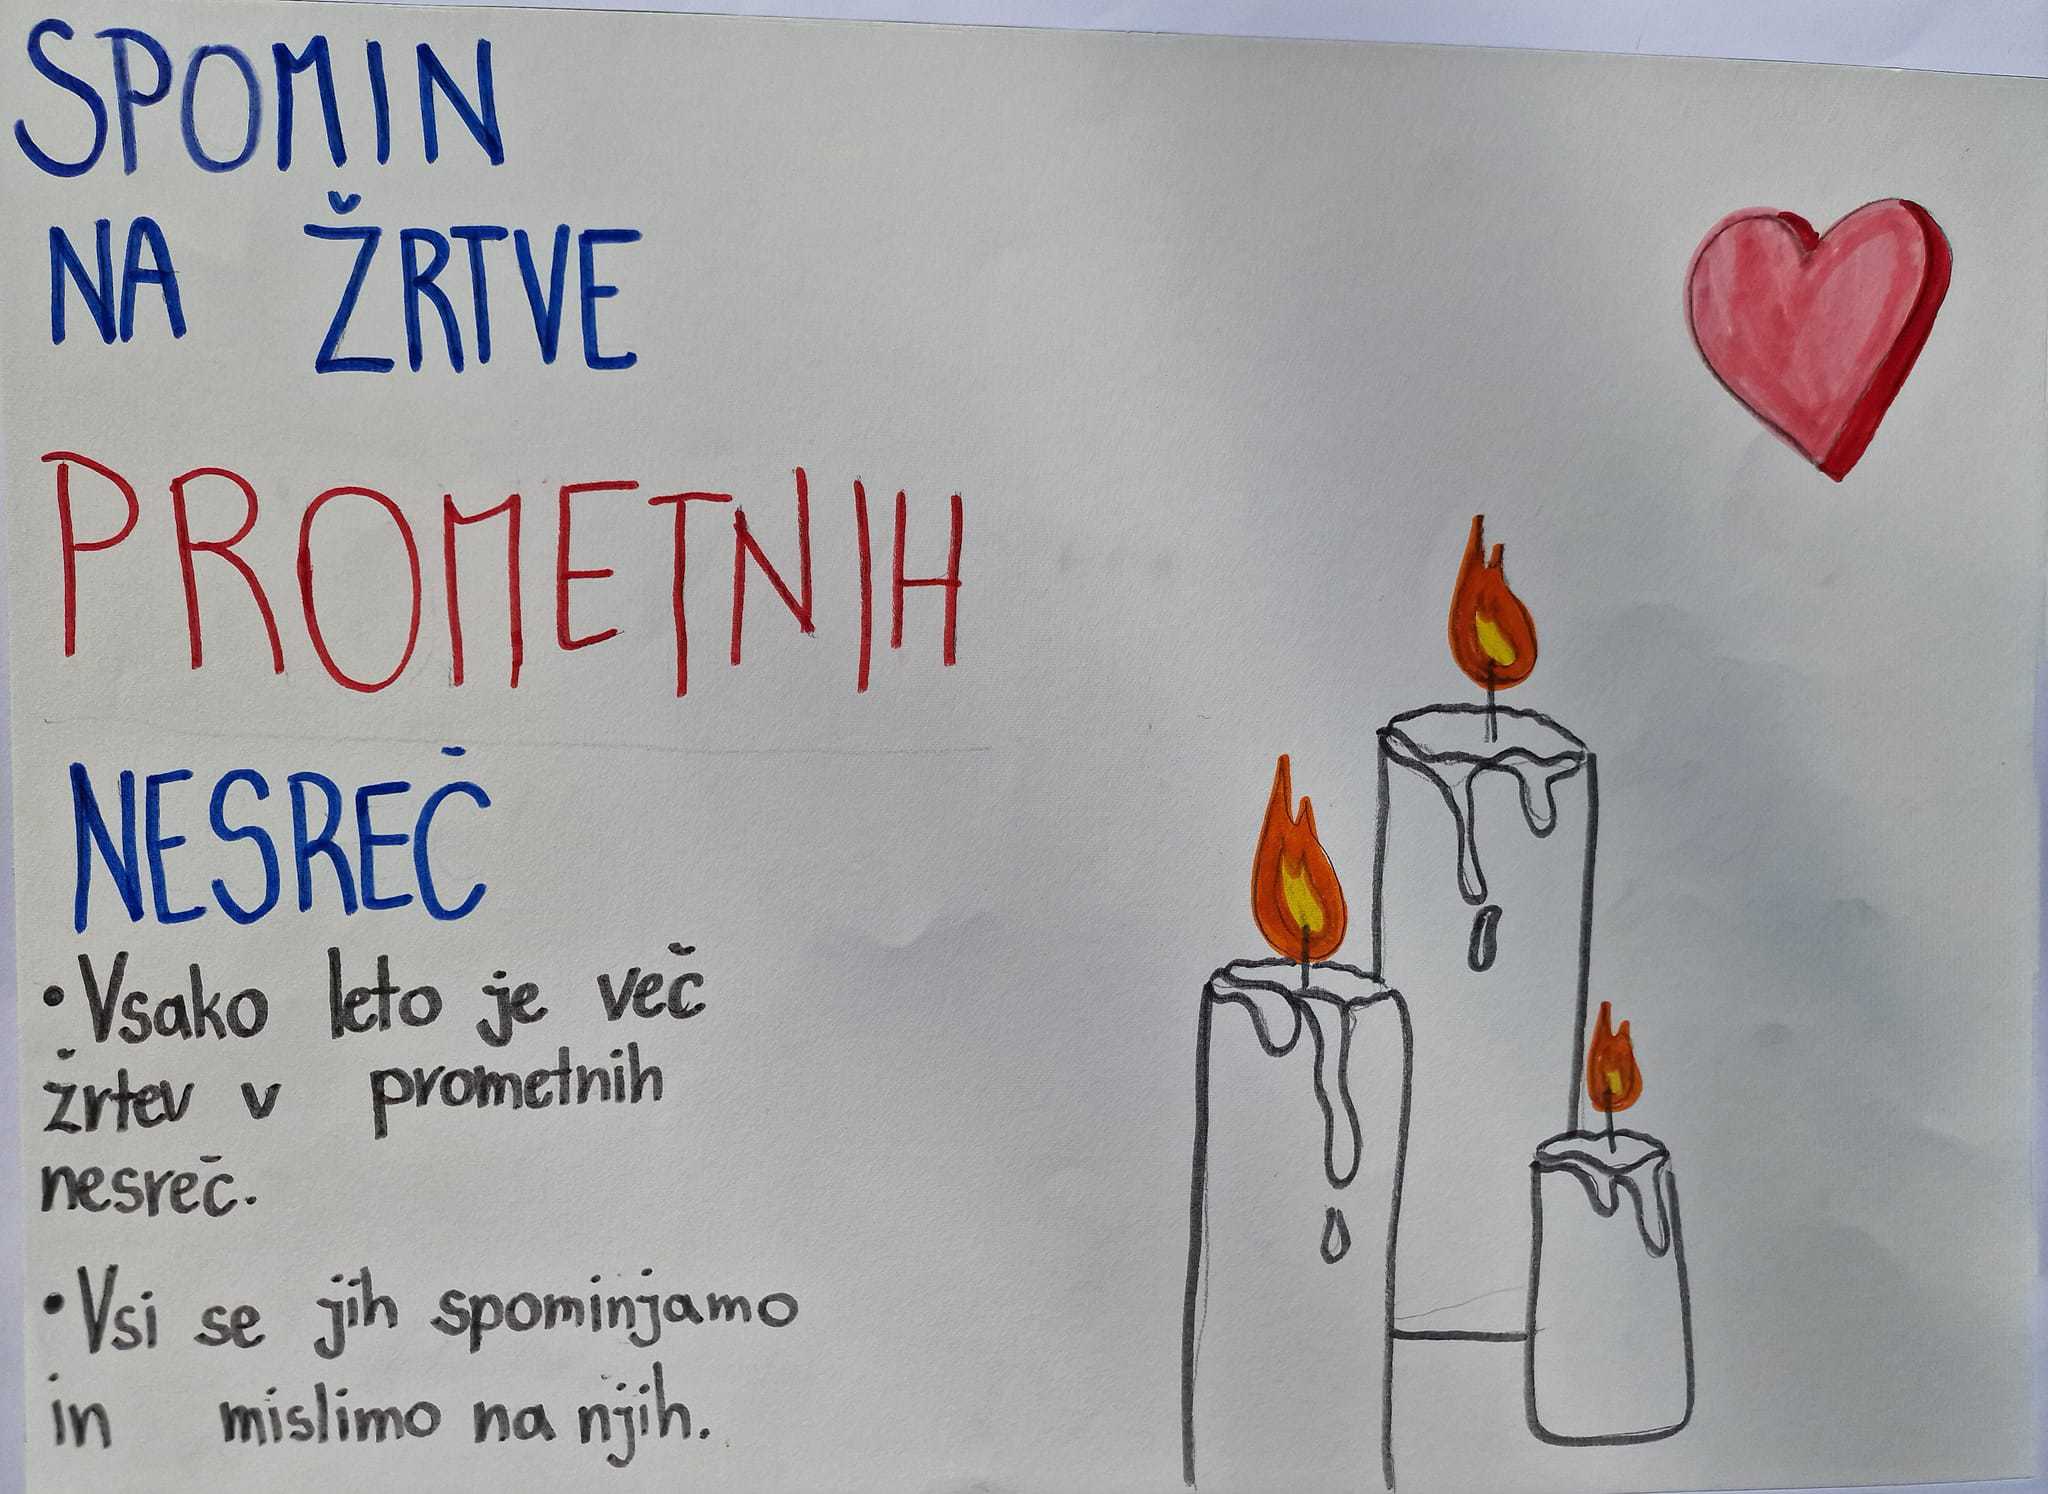 SPOMIN
NA ŽRTVE
PROMETNIH
NESREČ
• Vsako leto je več
žrtev v prometnih
nesreč.
• Vsi se jih spominjamo
in mislimo na njih.